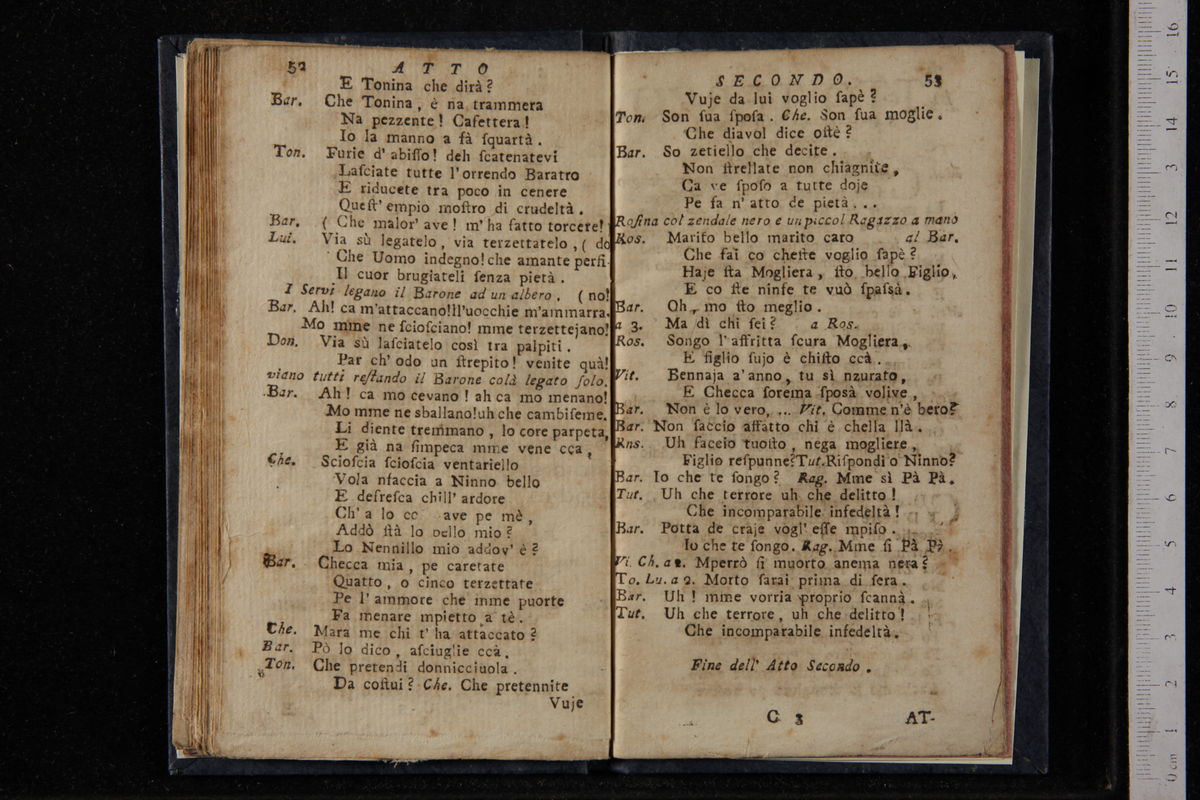 52 ATTO
E Tonina che dirà?
Bar. Che Tonina, è na trammera
Na pezzente! Cafettera!
Io la manno a fà ſquartà.
Ton. Furie d' abiſſo! deh ſcatenatevi
Laſciate tutte l'orrendo Baratro
E riducete tra poco in cenere
Queſt' empio moſtro di crudeltà.
Bar. ( Che malor' ave! m'ha fatto torcere!
Lui. Via sù legatelo, via terzettatelo, ( do
Che Uomo indegno! che amante perfi-
Il cuor brugiateli ſenza pietà.
I Servi legano il Barone ad un albero. ( no!
Bar. Ah! ca m'attaccano!ll'uocchie m'ammarra.
Mo mme ne ſcioſciano! mme terzettejano!
Don. Via sù laſciatelo così tra palpiti.
Par ch' odo un ſtrepito! venite quà!
viano tutti reſtando il Barone colà legato ſolo.
Bar. Ah! ca mo cevano! ah ca mo menano!
Mo mme ne sballano!uh che cambiſeme.
Li diente tremmano, lo core parpeta,
E già na ſimpeca mme vene cca,
Che. Scioſcia ſcioſcia ventariello
Vola nfaccia a Ninno bello
E defreſca chill' ardore
Ch' a lo cc ave pe mè,
Addò ſtà lo bello mio?
Lo Nennillo mio addov' è?
Bar. Checca mia, pe caretate
Quatto, o cinco terzettate
Pe l' ammore che mme puorte
Fa menare mpietto a tè.
Che. Mara me chi t' ha attaccato?
Bar. Pò lo dico, aſciuglie ccà.
Ton. Che pretendi donnicciuola.
Da coſtui? Che. Che pretennite
Vuje
SECONDO. 53
Vuje da lui voglio ſapè?
Ton. Son ſua ſpoſa. Che. Son ſua moglie.
Che diavol dice oſtè?
Bar. So zetiello che decite.
Non ſtrellate non chiagnite,
Ca ve ſpoſo a tutte doje
Pe fa n' atto de pietà...
Roſina col zendale nero e un piccol Ragazzo a mano
Ros. Marito bello marito caro al Bar.
Che fai co cheſte voglio ſapè?
Haje ſta Mogliera, ſto bello Figlio,
E co ſte ninfe te vuò ſpaſsà.
Bar. Oh, mo ſto meglio.
a 3. Ma dì chi ſei? a Ros.
Ros. Songo l'affritta ſcura Mogliera,
E figlio ſujo è chiſto ccà.
Vit. Bennaja a'anno, tu sì nzurato,
E Checca ſorema ſposà volive,
Bar. Non è lo vero, ... Vit. Comme n'è bero?
Bar. Non faccio affatto chi è chella llà.
Ros. Uh faccio tuoſto, nega mogliere,
Figlio reſpunne?Tut.Riſpondi o Ninno?
Bar. Io che te ſongo? Rag. Mme sì Pà Pà.
Tut. Uh che terrore uh che delitto!
Che incomparabile infedeltà!
Bar. Potta de craje vogl' eſſe mpiſo.
Io che te ſongo. Rag. Mme ſi Pà Pà.
Vi. Ch. a 2. Mperrò ſi muorto anema nera?
To. Lu. a 2. Morto ſarai prima di ſera.
Bar. Uh! mme vorria proprio ſcannà.
Tut. Uh che terrore, uh che delitto!
Che incomparabile infedeltà.
Fine dell' Atto Secondo.
C 3 AT-
0 cm 1 2 3 4 5 6 7 8 9 10 11 12 13 14 15 16